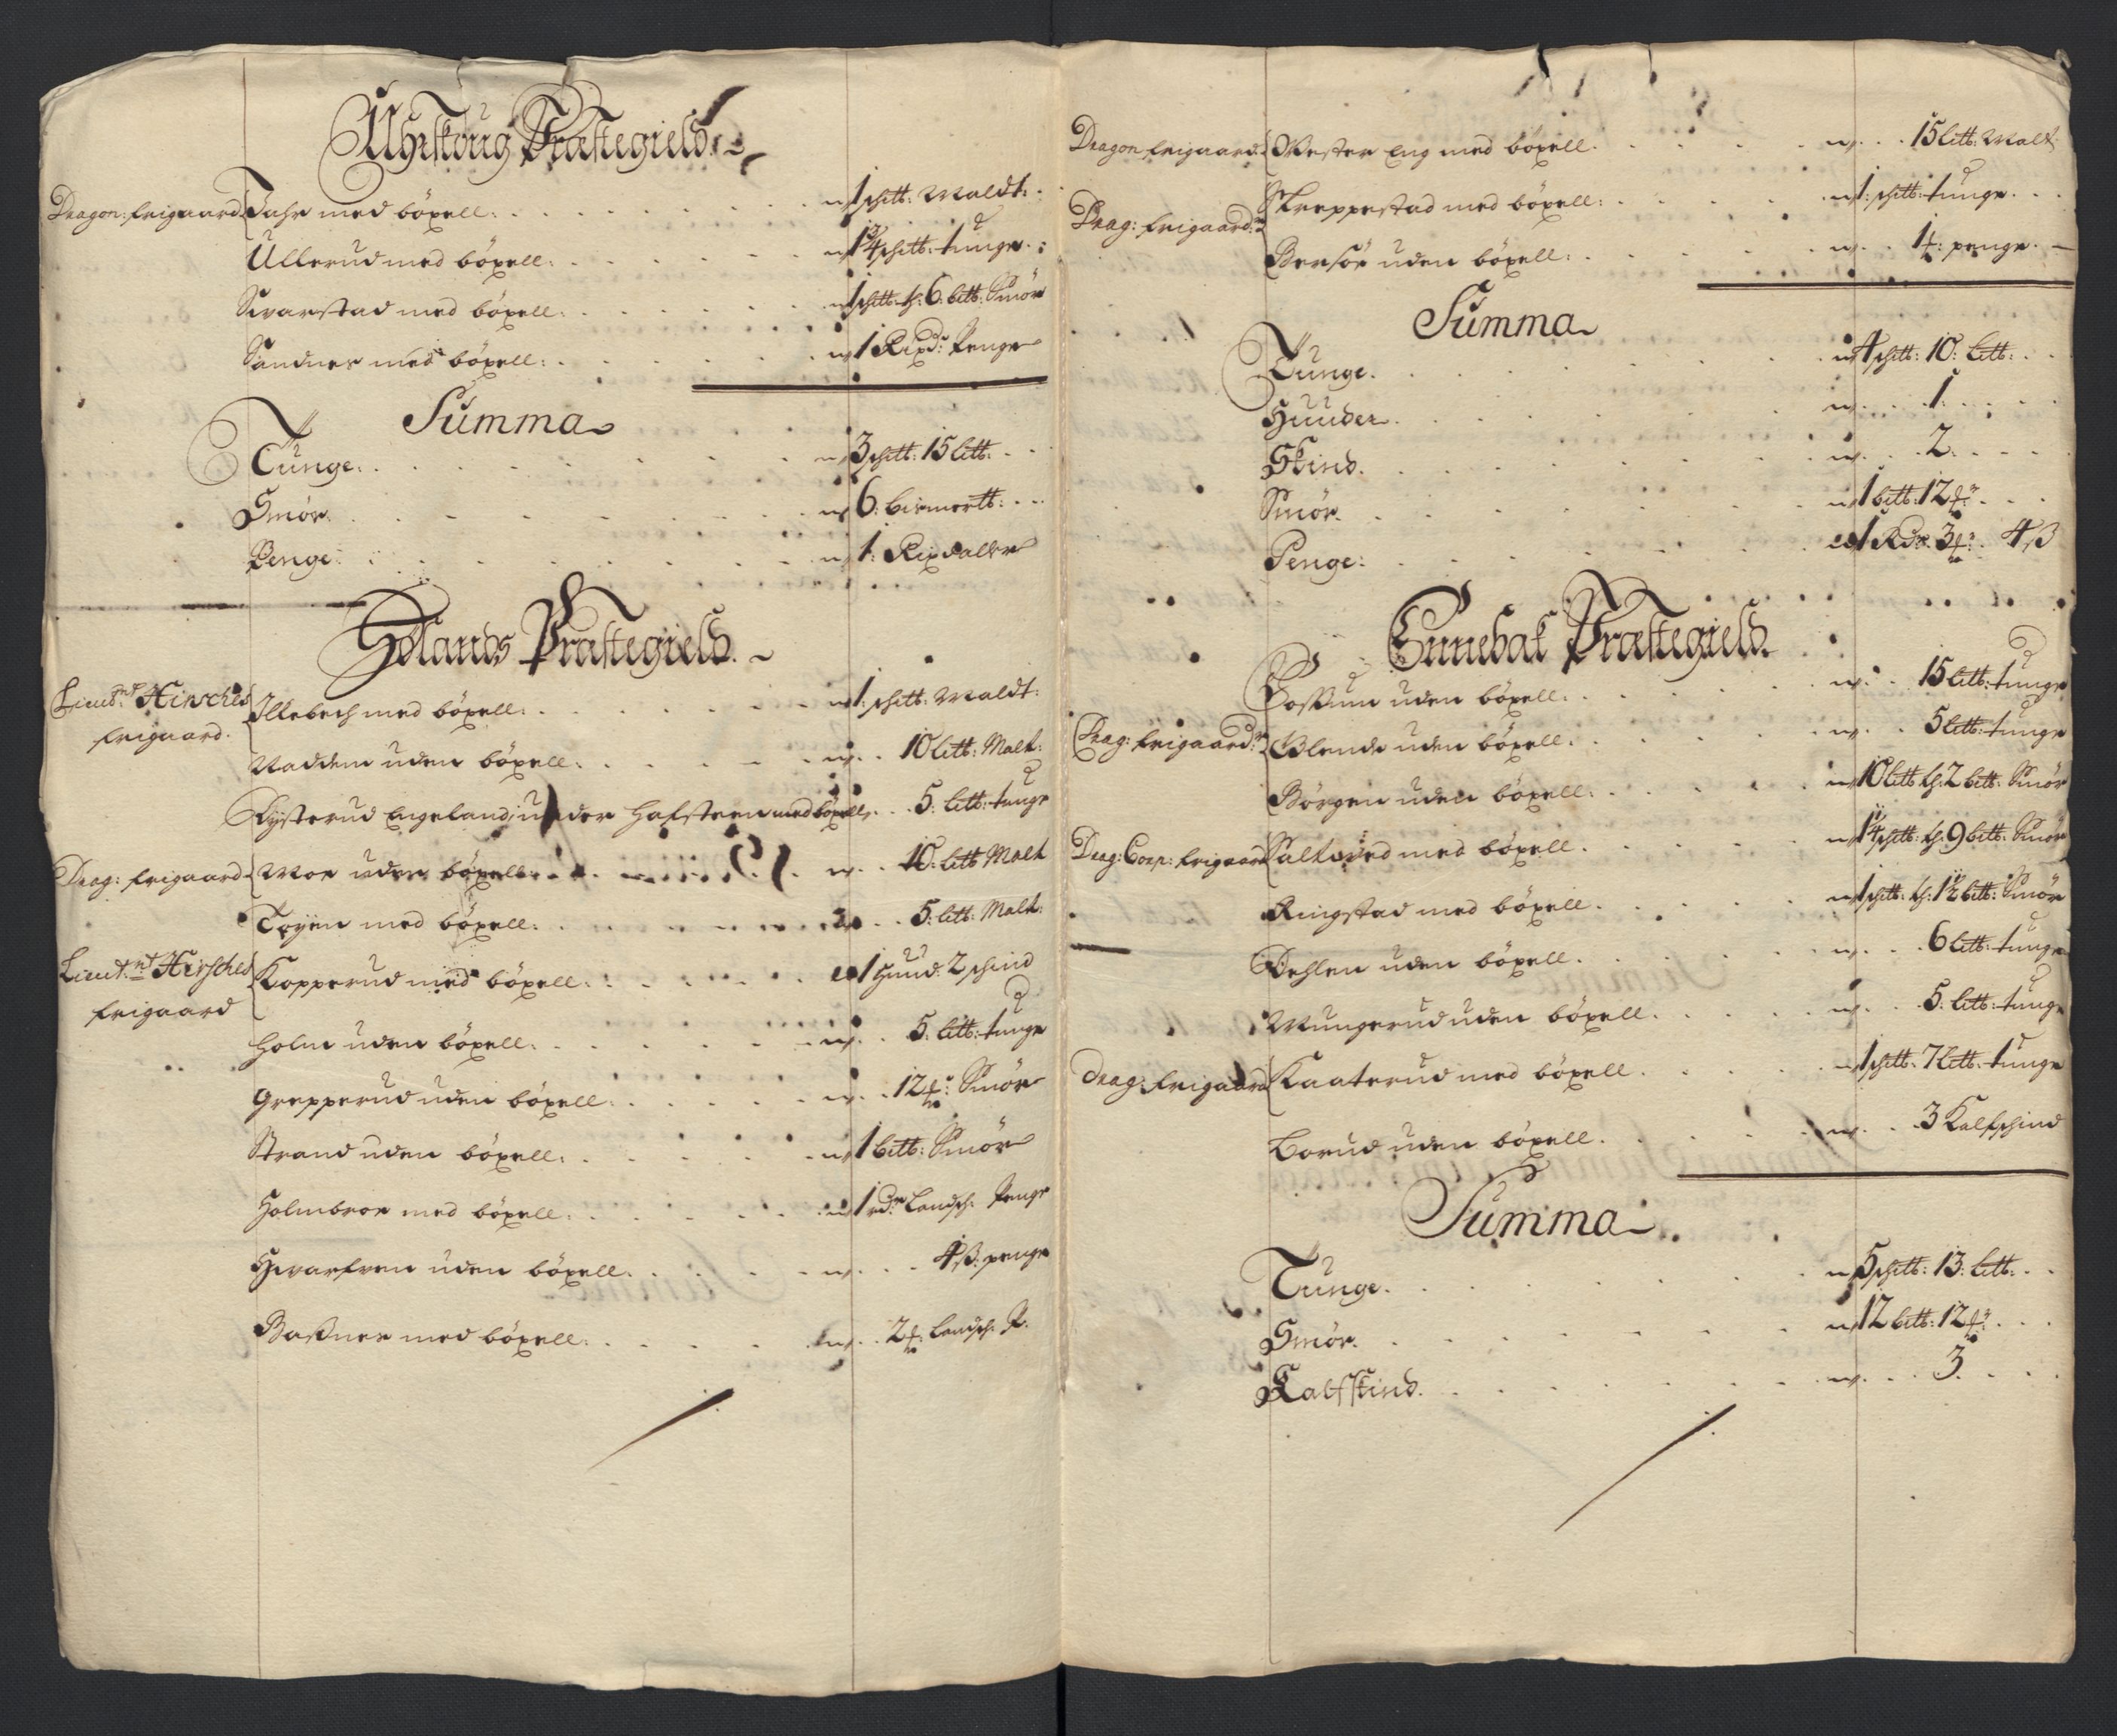 Uhrskoug Præstegield.
Dragon: frigaard Fahr med böxell: 1 schltt: Maldt:
Ullerud med böxell: 1¾ schltt: tunge
Svarstad med böxell: 1 schltt: h: 6: bltt: Smör
Sandner med böxell: 1 Rixdr Penge
Summa
Tunge: 3 schltt: 15 Litt:
Smör: 6: bismerltt:
Penge: 1: Rixdaller
Hölands Præstegield.
Lieutnt Hirsches Illebech med böxell: 1: schltt: Maldt:
frigaard.
Naddem uden böxell: 10 Litt: Malt:
Tysterud Engeland, under Hafsteen med böxell, 5: Litt: tunge
Drag: frigaard Moe uden böxell 10: Litt Malt
Toyen med böxell: 5: Litt: Malt:
Lieutnt Hirsches Kopperud med böxell: 1 Huud: 2 schind
frigaard
Holm uden böxell: 5: Litt: tunge
Grepperud uden böxell: 12 Smör
Strand uden böxell: 1 bltt: Smör
Holmbroe med böxell: 1 rdr Landsch: Penge
Hvarfven uden böxell: 4 ß: penge
Baßnes med böxell: 2 Landsch: P.
Dragon frigaard: Wester Eng med böxell: 15 Litt: Malt
Skreppestad med böxell: 1: schltt: tunge
Drag: frigaard:
Bersöe uden böxell: 1: penge
Summa
Tunge: 4 schltt: 10: Litt:
Huuder 1
Skind. 2
Smör 1 bltt: 12
Penge: 1 Rdr: 3 4 ß
Ennebak Præstegield.
Foßum uden böxell: 15 Litt: tunge
Drag: frigaard: Blende uden böxell: 5 Litt: tunge
Börgen uden böxell: 10 Litt h: 2 bltt: Smör
Drag: Corp: frigaard med böxell 1¼ schltt: h: 9 bltt: Smör
Ringstad med böxell 1 schltt: h: 1½ bltt: Smör
Dehlen uden böxell. 6 Litt: tunge
Mungerud uden böxell. 5: Litt: tunge
Drag: frigaard Kaaterud med böxell 1 schltt: 7 Litt: tunge
Borud uden böxell. 3 Kalfschind
Summa
Tunge. 5 schltt: 13: Litt:
Smör. 12 bltt: 12
Kalfskind. 3